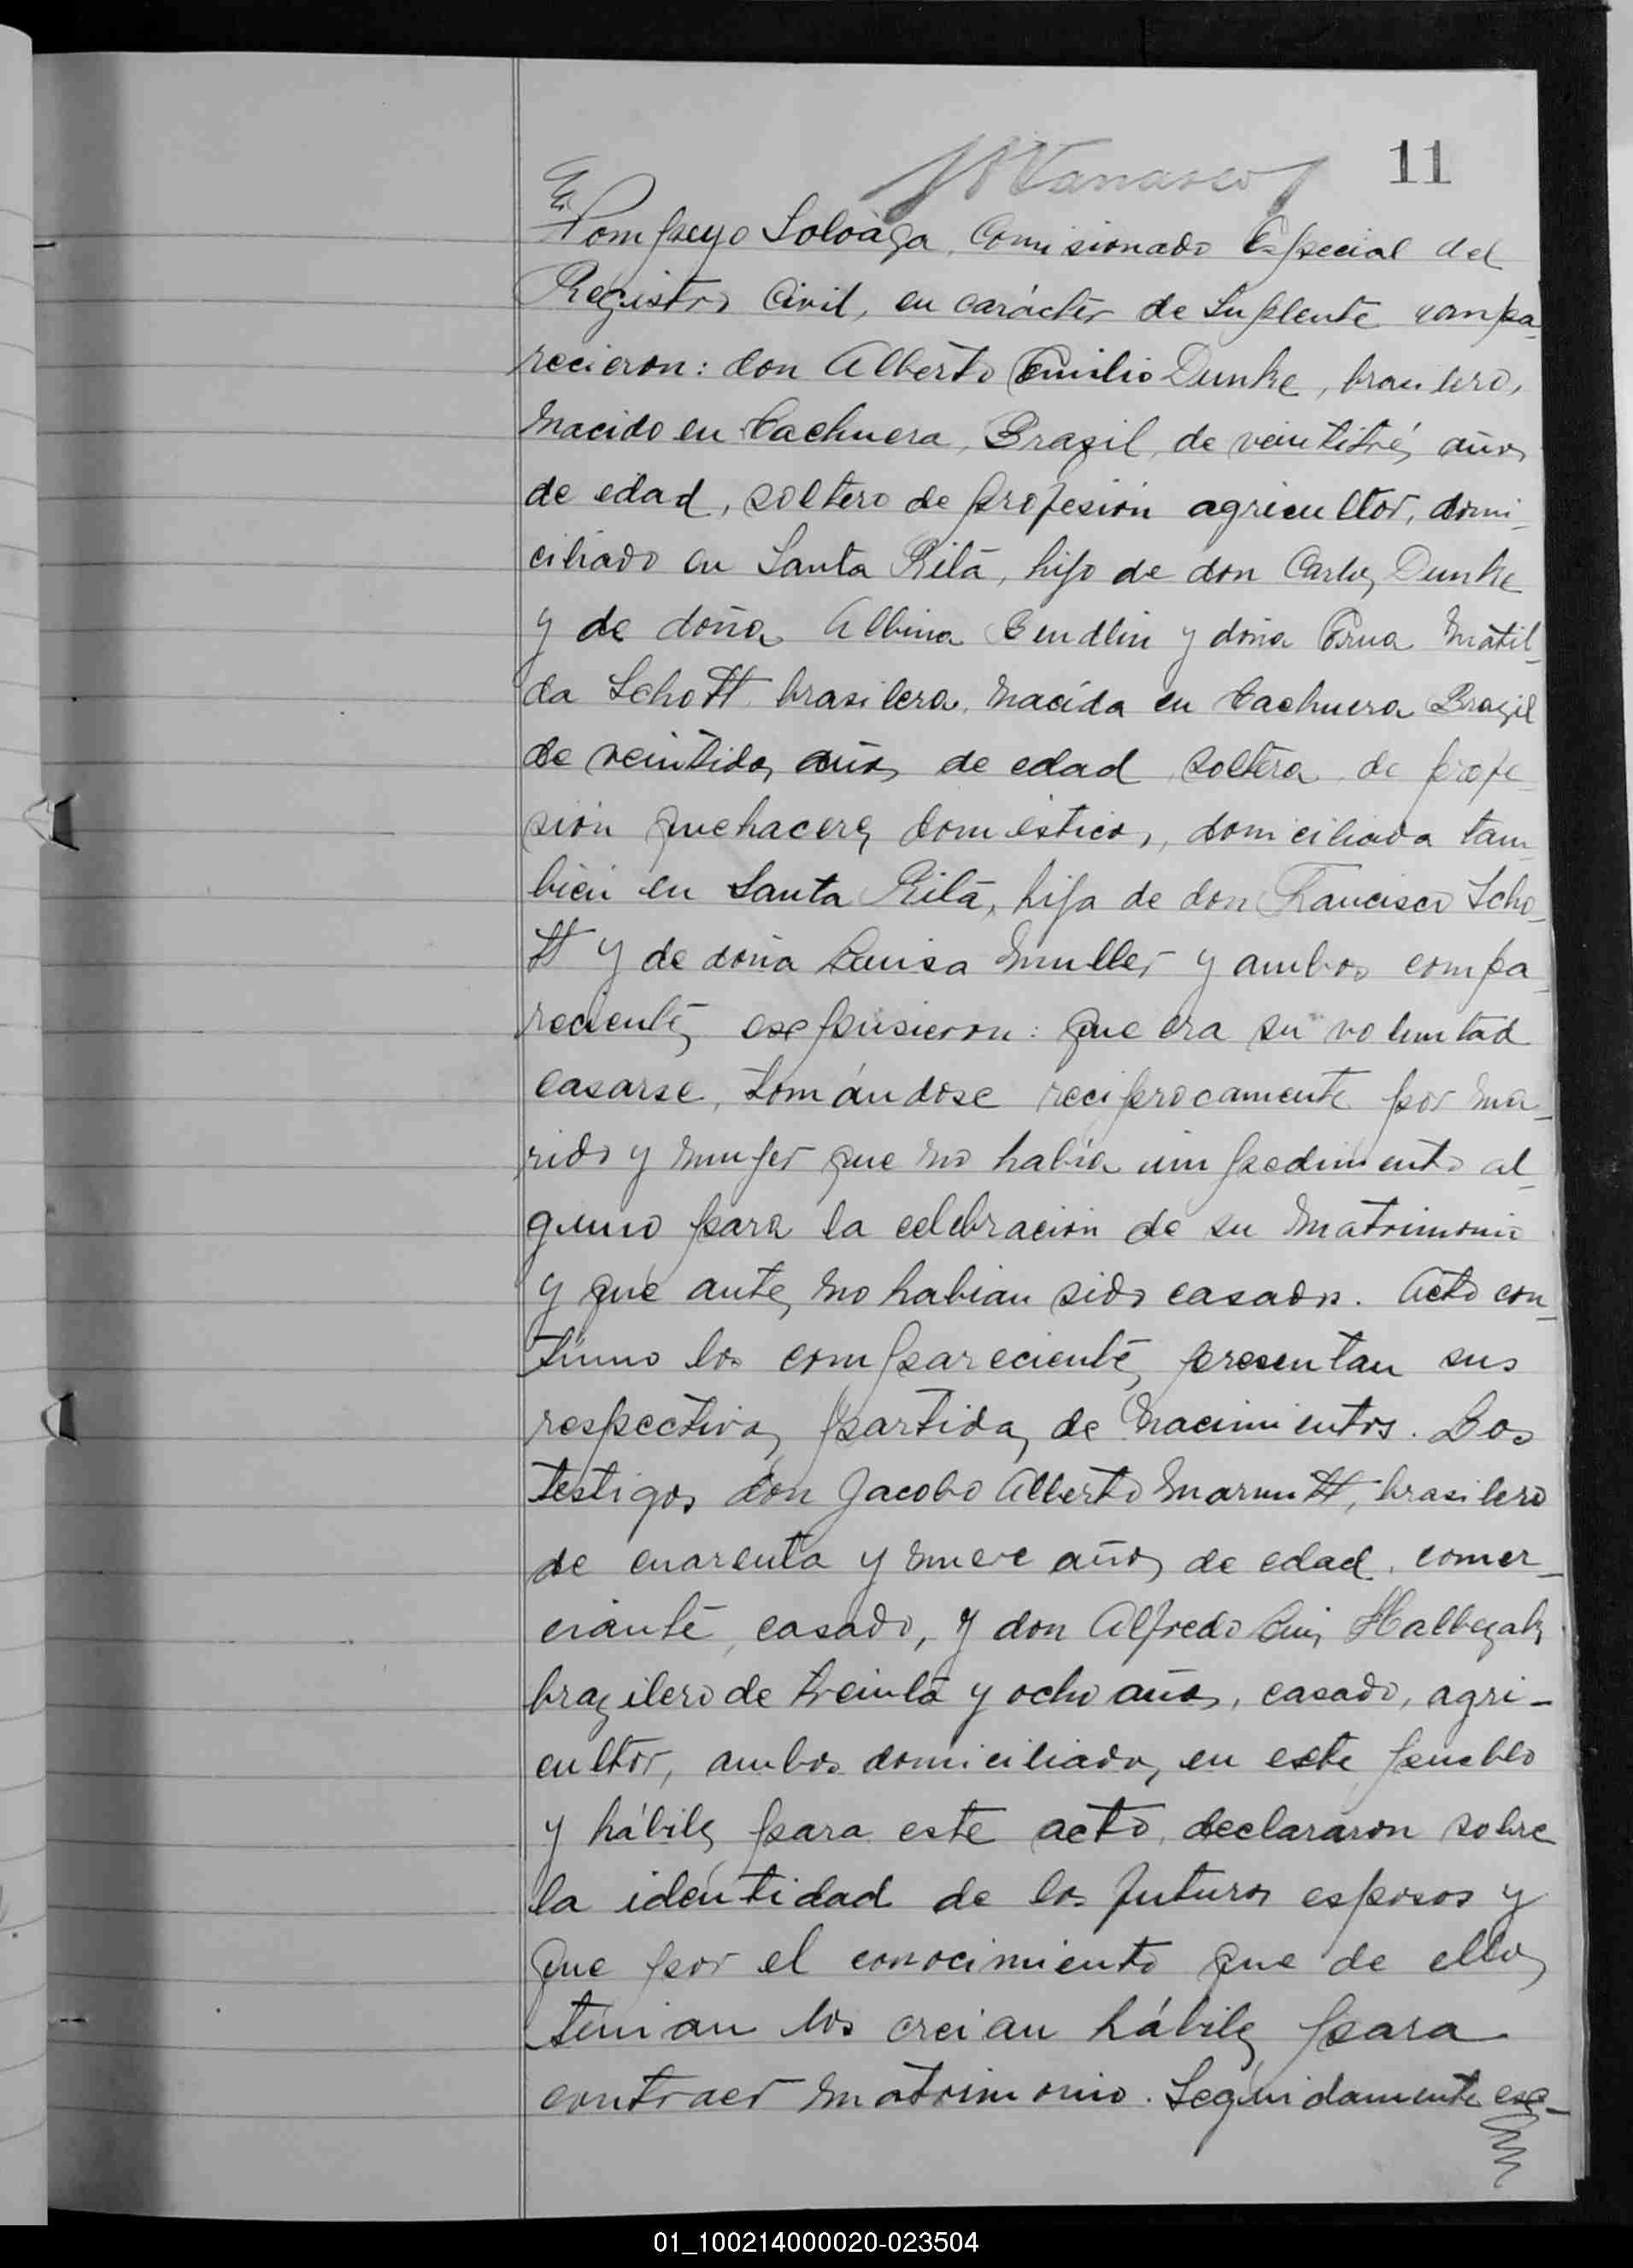 11
Pompeyo Soloaga, Comisionado Especial del
Registro Civil, en carácter de Suplente compa_
recieron: don Alberto Emilio Dunke, brasilero,
nacido en Cachuera, Brazil, de veintitrés años
de edad, soltero de profesión agricultor, domi_
ciliado en Santa Rita, hijo de don Carlos Dunke
y de doña Albina Gendlin y doña Erna Matil_
da Schott brasilera, nacida en Cachuera Brazil
de veintidos años de edad soltera, de profe_
sión quehaceres domésticos, domiciliada tam_
bién en Santa Rita, hija de don Francisco Scho_
tt y de doña Luisa Muller y ambos compa_
recientes expusieron: que era su voluntad
casarse, tomándose reciprocamente por ma_
rido y mujer que no había impedimento al_
guno para la celebración de su matrimonio
y que antes no habian sido casados. Acto con_
tinuo los comparecientes presentan sus
respectivas partidas de nacimientos. Los
testigos don Jacobo Alberto Marmitt, brasilero
de cuarenta y nueve años de edad, comer_
ciante, casado, y don Alfredo Luis
brazilero de treinta y ocho años, casado, agri_
cultor, ambos domiciliados en este pueblo
y hábiles para este acto, declararon sobre
la identidad de los futuros esposos y
que por el conocimiento que de ellos
tenian los creian hábiles para
contraer matrimonio. Seguidamente ex_
01_100214000020-023504